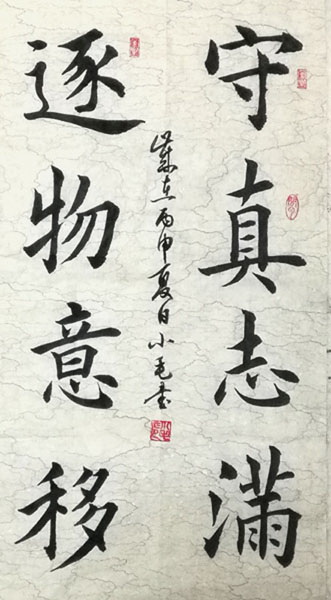 守真志滿
逐物意移
丙申夏日小毛书